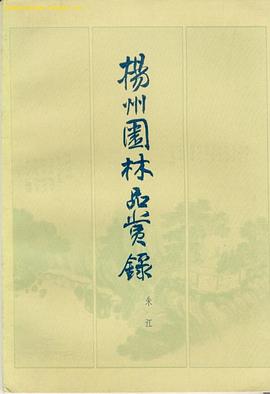 揚州園林品赏錄
朱江